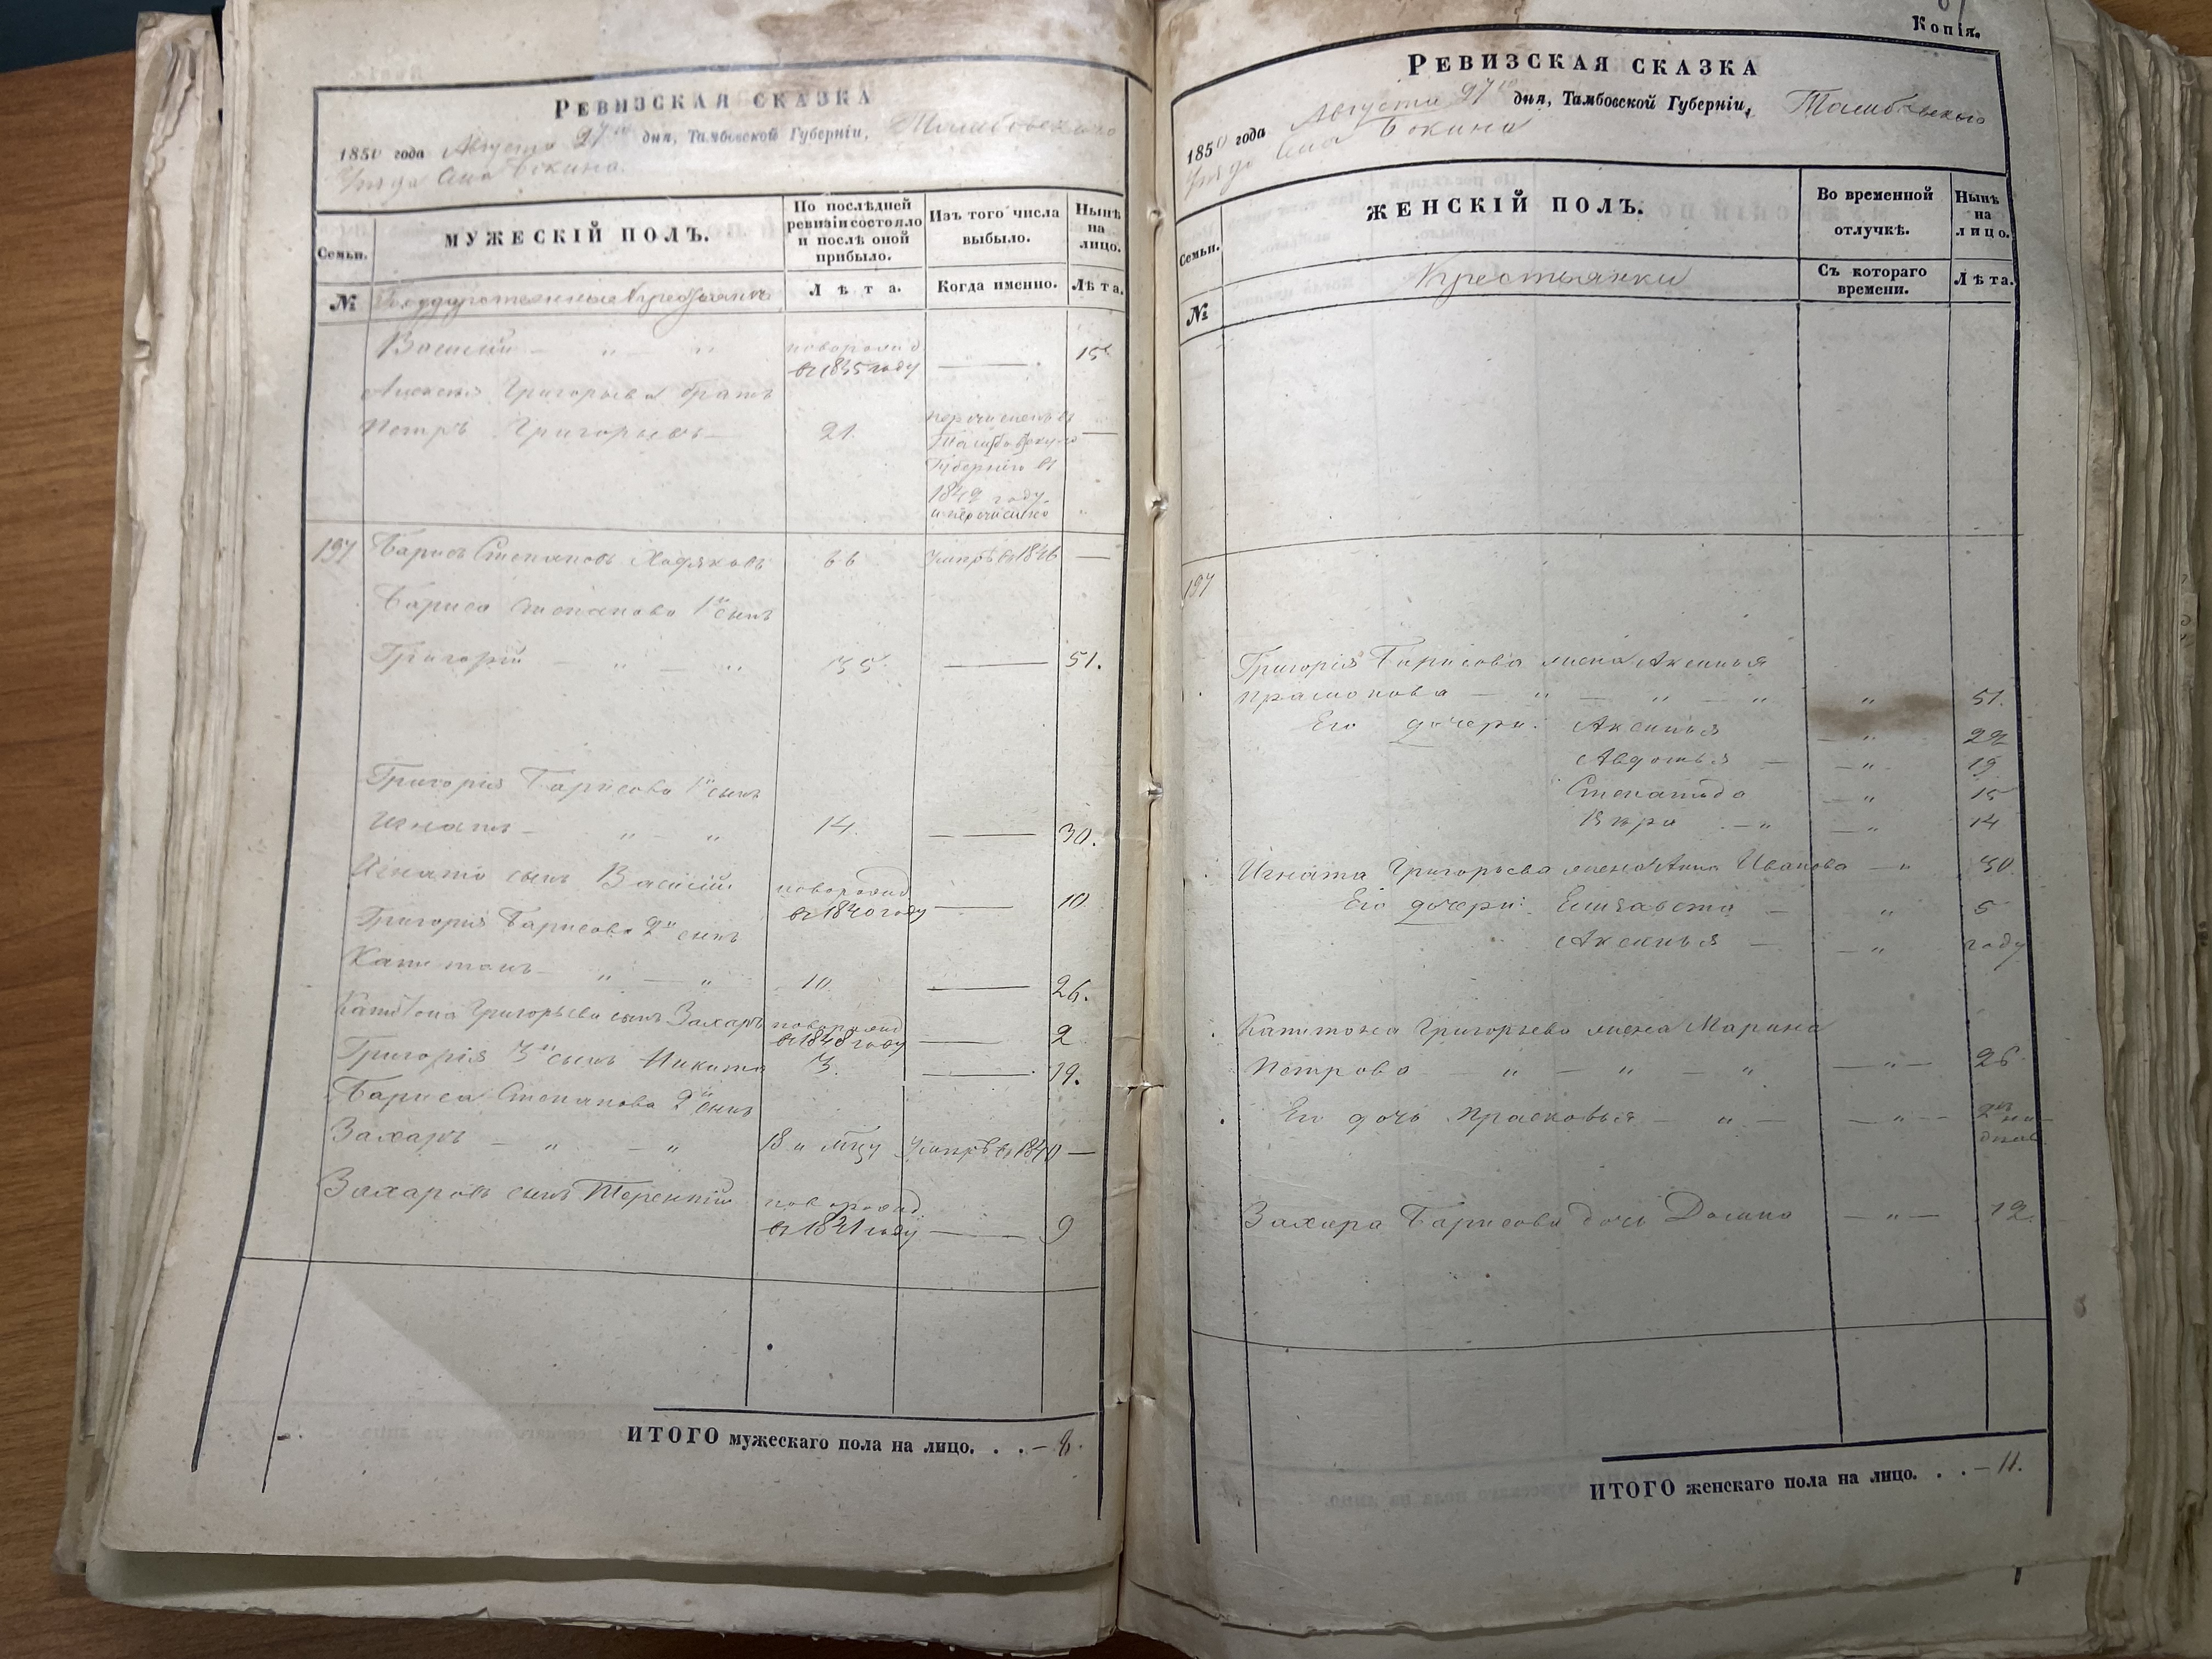 РЕВИЗСКАЯ СКАЗКА
1850 года Августа 27го дня, Тамбовской Губерніи, Тамбовскаго
Уѣзда Села Бокина.
Семьи.
МУЖЕСКІЙ ПОЛЪ.
По послѣдней
ревизіи состояло
и послѣ оной
прибыло.
Изъ того числа
выбыло.
Нынѣ
на
лицо.
№
Государственные Крестьяне
Лѣта.
Когда именно.
Лѣта.
Василій — " — " новорожд
въ 1835 году — 15
Алексѣя Григорьева братъ
Петръ Григорьевъ — 21. перечисленъ въ
Губернію въ
1842 году.
197 Барисъ Степановъ Ходяковъ 66 Умеръ въ 1846 —
Бариса Степанова 1й сынъ
Григорій — " — " 35 — 51.
Григорія Барисова 1й сынъ
Игнатъ — " — " 14. — 30.
Игната сынъ Василій новорожд
въ 1840 году — 10
Григорія Барисова 2й сынъ
Капитонъ — " — " 10 — 26.
Капитона Григорьева сынъ Захаръ новорожд
въ 1848 году — 2
Григорія 3й сынъ Никита 3. — 19.
Бариса Степанова 2й сынъ
Захаръ — " — " 18 и мцу Умеръ въ 1840 —
Захаровъ сынъ Терентій новорожд
въ 1841 году — 9
ИТОГО мужескаго пола на лицо. . . — 8.
Копія.
РЕВИЗСКАЯ СКАЗКА
1850 года Августа 27го дня, Тамбовской Губерніи, Тамбовскаго
Уѣзда Села Бокина
Семьи.
ЖЕНСКІЙ ПОЛЪ.
Во временной
отлучкѣ.
Нынѣ
на
лицо.
№
Крестьянки
Съ котораго
времени.
Лѣта.
197
Григорія Барисова жена Аксинья
— " — " — " " 51.
Его дочери: Аксинья — " 22
Авдотья — — " — 19
Степанида — " 15
Вѣра — " — " 14
Игната Григорьева жена Анна Иванова — " 30
Его дочери: Елизавета — " 5
Аксинья — — " — году
Капитона Григорьева жена Марина
Петрова — " — " — " — " — 26.
Его дочь Прасковья — " — — " —
Захара Барисова дочь Домна — " — 12.
ИТОГО женскаго пола на лицо. . . — 11.